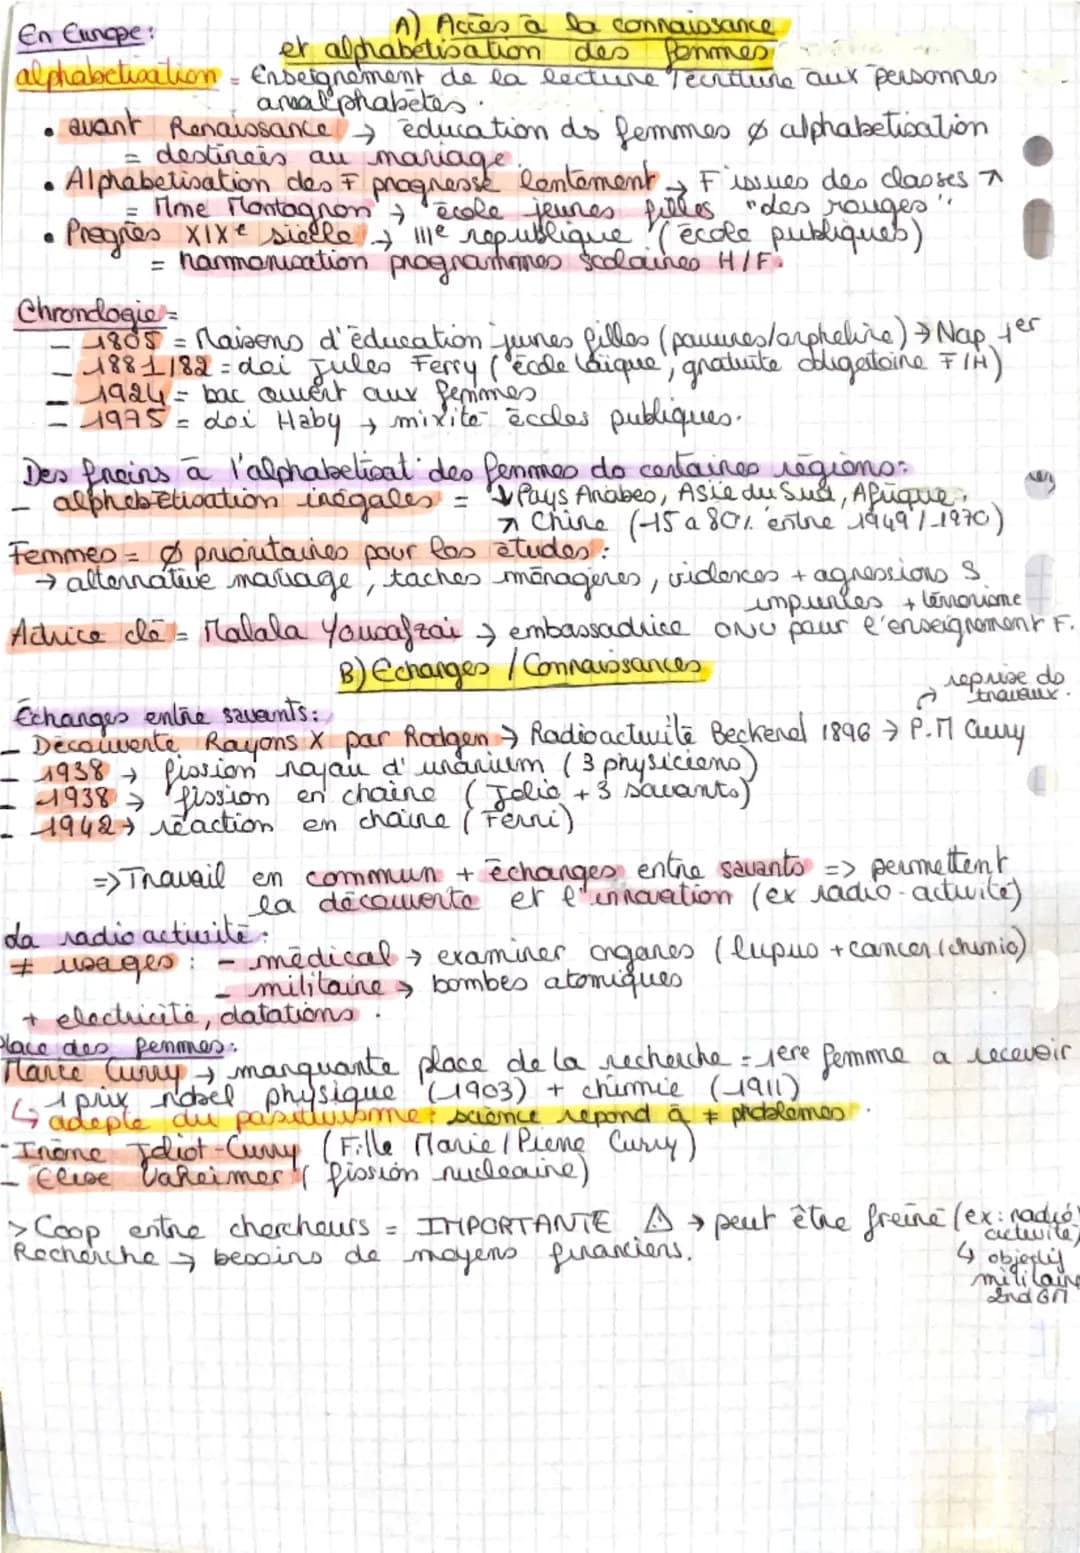 A) Accès à la connaissance
En Europe :
et alphabétisation des femmes
alphabétisation = Enseignement de la lecture / écriture aux personnes
analphabètes.
• avant Renaissance → éducation ds femmes ∅ alphabétisation
= destinées au mariage.
• Alphabétisation des F progresse lentement → F issues des classes ↗
= Mme Montagnon → école jeunes filles "des rouges".
• Progrès XIXe siècle → IIIe république (école publiques)
= harmonisation programmes scolaires H/F.
Chronologie =
- 1805 = Maisons d'éducation jeunes filles (pauvres/orpheline) → Nap 1er
- 1881/82 = loi Jules Ferry (école laïque, gratuite obligatoire F/H)
- 1924 = bac ouvert aux femmes
- 1975 = loi Haby → mixité écoles publiques.
Des freins à l'alphabétisat° des femmes ds certaines régions :
- alphabétisation inégales = ↓ Pays Arabes, Asie du Sud, Afrique.
↗ Chine (15 à 80% entre 1949 / 1970)
Femmes = ∅ prioritaires pour les études :
→ alternative mariage, taches ménagères, violences + agressions S
impunies + terrorisme
Actrice clé = Malala Yousafzai → embassadrice ONU pour l'enseignement F.
B) Echanges / Connaissances
reprise ds
travaux.
Échanges entre savants :
- Découverte Rayons X par Rodgen → Radioactivité Beckerel 1896 → P.M Curry
- 1938 → fission noyau d'uranium (3 physiciens)
- 1938 → fission en chaîne (Jolio + 3 savants)
- 1942 → réaction en chaine (Fermi)
=> Travail en commun + échanges entre savants => permettent
la découverte et l'innovation (ex radio-activité)
La radioactivité :
≠ usages : - médical → examiner organes (lupus + cancer (chimio)
- militaire → bombes atomiques
+ electricité, datations.
Place des femmes :
Marie Curry → marquante place de la recherche = 1ère femme a recevoir
1 prix nobel physique (1903) + chimie (1911)
↳ adepte du positivisme : science repond à ≠ problèmes.
- Irène Joliot-Curry (Fille Marie / Pierre Curry)
- Elise (fission nucléaire)
> Coop entre chercheurs = IMPORTANTE ⚠ → peut être freiné (ex: radio
activité)
Recherche → besoins de moyens financiers.
↳ objectif
militaire
2nd GM